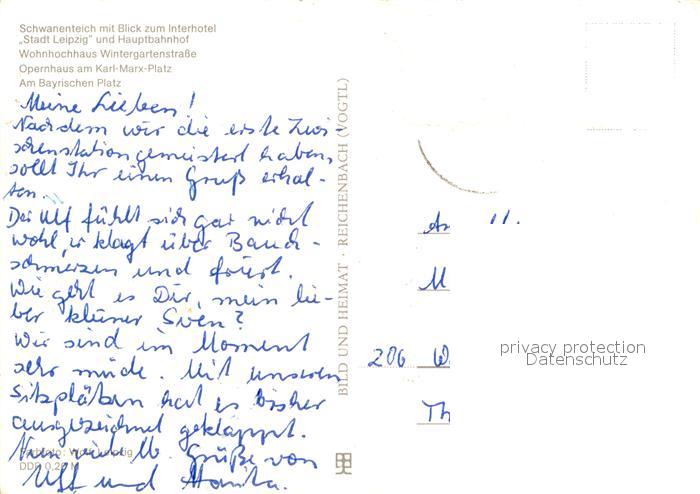 Schwanenteich mit Blick zum Interhotel
„Stadt Leipzig" und Hauptbahnhof
Wohnhochhaus Wintergartenstraße
Opernhaus am Karl-Marx-Platz
Am Bayrischen Platz
Meine Lieben!
Nachdem wir die erste Zwi-
schenstation gemeistert haben,
sollt Ihr einen Gruß erhal-
ten.
Der Ulf fühlt sich gar nicht
wohl, er klagt über Bauch-
schmerzen und friert.
Wie geht es Dir, mein lie-
ber kleiner Sven?
Wir sind im Moment
sehr müde. Mit unseren
Sitzplätzen hat es bisher
ausgezeichnet geklappt.
Nun viele lb. Grüße von
Ulf und Monika.
DDR 0,20 M
BILD UND HEIMAT · REICHENBACH (VOGTL)
11.
M
206 W
Th
privacy protection
Datenschutz